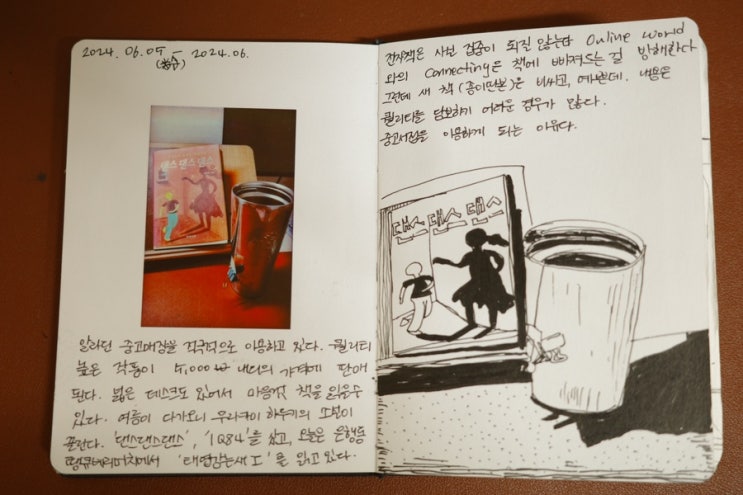 2024. 06. 05 - 2024. 06.
댄스 댄스 댄스
알라딘 중고매장을 적극적으로 이용하고 있다. 퀄리티
높은 작품이 5,000₩ 내외의 가격에 판매
된다. 넓은 데스크도 있어서 마음껏 책을 읽을 수
있다. 여름이 다가오니 무라카미 하루키의 소설이
끌린다. '댄스댄스댄스', '1Q84'를 샀고, 오늘은 은행동
에서 '태엽감는새 I'을 읽고 있다.
전자책은 사실 집중이 되질 않는다 Online World
와의 Connecting은 책에 빠져드는 걸 방해한다
그런데 새 책(종이판본)은 비싸고, 예쁜데. 내용은
퀄리티를 담보하기 어려운 경우가 많다.
중고서점을 이용하게 되는 이유다.
댄스 댄스 댄스